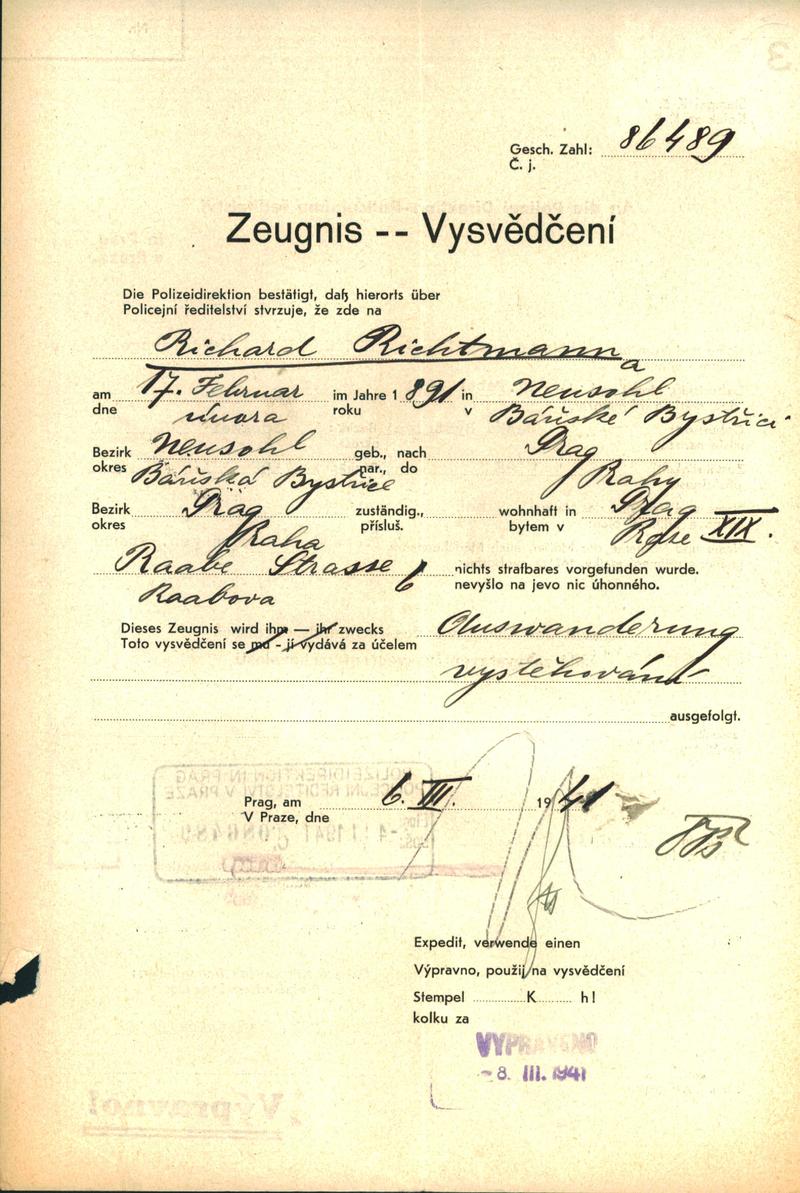 Gesch. Zahl: 86489
Č. j.
Zeugnis -- Vysvědčení
Die Polizeidirektion bestätigt, daß hierorts über
Policejní ředitelství stvrzuje, že zde na
Richard Richtmann
a
am 17. Februar im Jahre 1891 in Neusohl
dne února roku v Báňské Bystřici
Bezirk Neusohl geb., nach Prag
okres Báňská Bystřice nar., do Prahy
Bezirk Prag zuständig., wohnhaft in Prag
okres Praha přísluš. bytem v XIX.
Raabe Strasse 6 nichts strafbares vorgefunden wurde.
Raabova nevyšlo na jevo nic úhonného.
Dieses Zeugnis wird ihm — ihr zwecks Auswanderung
Toto vysvědčení se mu - jí vydává za účelem
vystěhování
ausgefolgt.
Prag, am 6. III. 1941
V Praze, dne
Expedit, verwende einen
Výpravno, použij na vysvědčení
Stempel K h!
kolku za
VYPRAVENO
- 8. III. 1941
Výpravno!